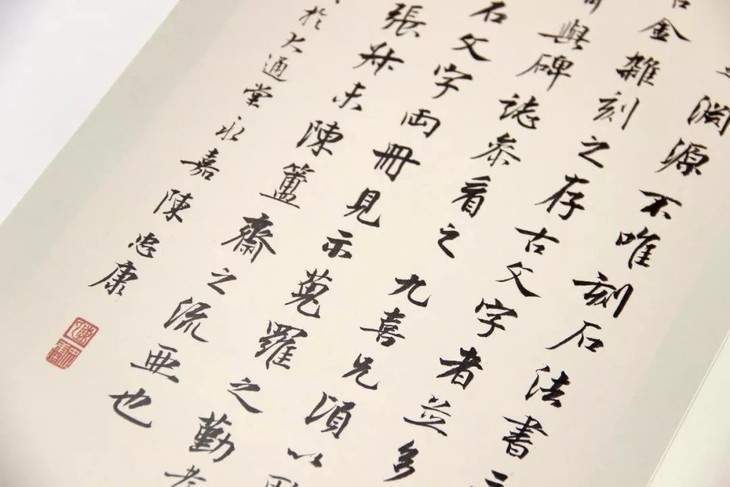 淵源不唯刻石法書
金雜刻之存古文字者並多
與碑誌參看之九喜兄須以
石文字兩冊見示蒐羅之勤考
張尗未陳簠齋之流亞也
於大通堂永嘉陳忠康